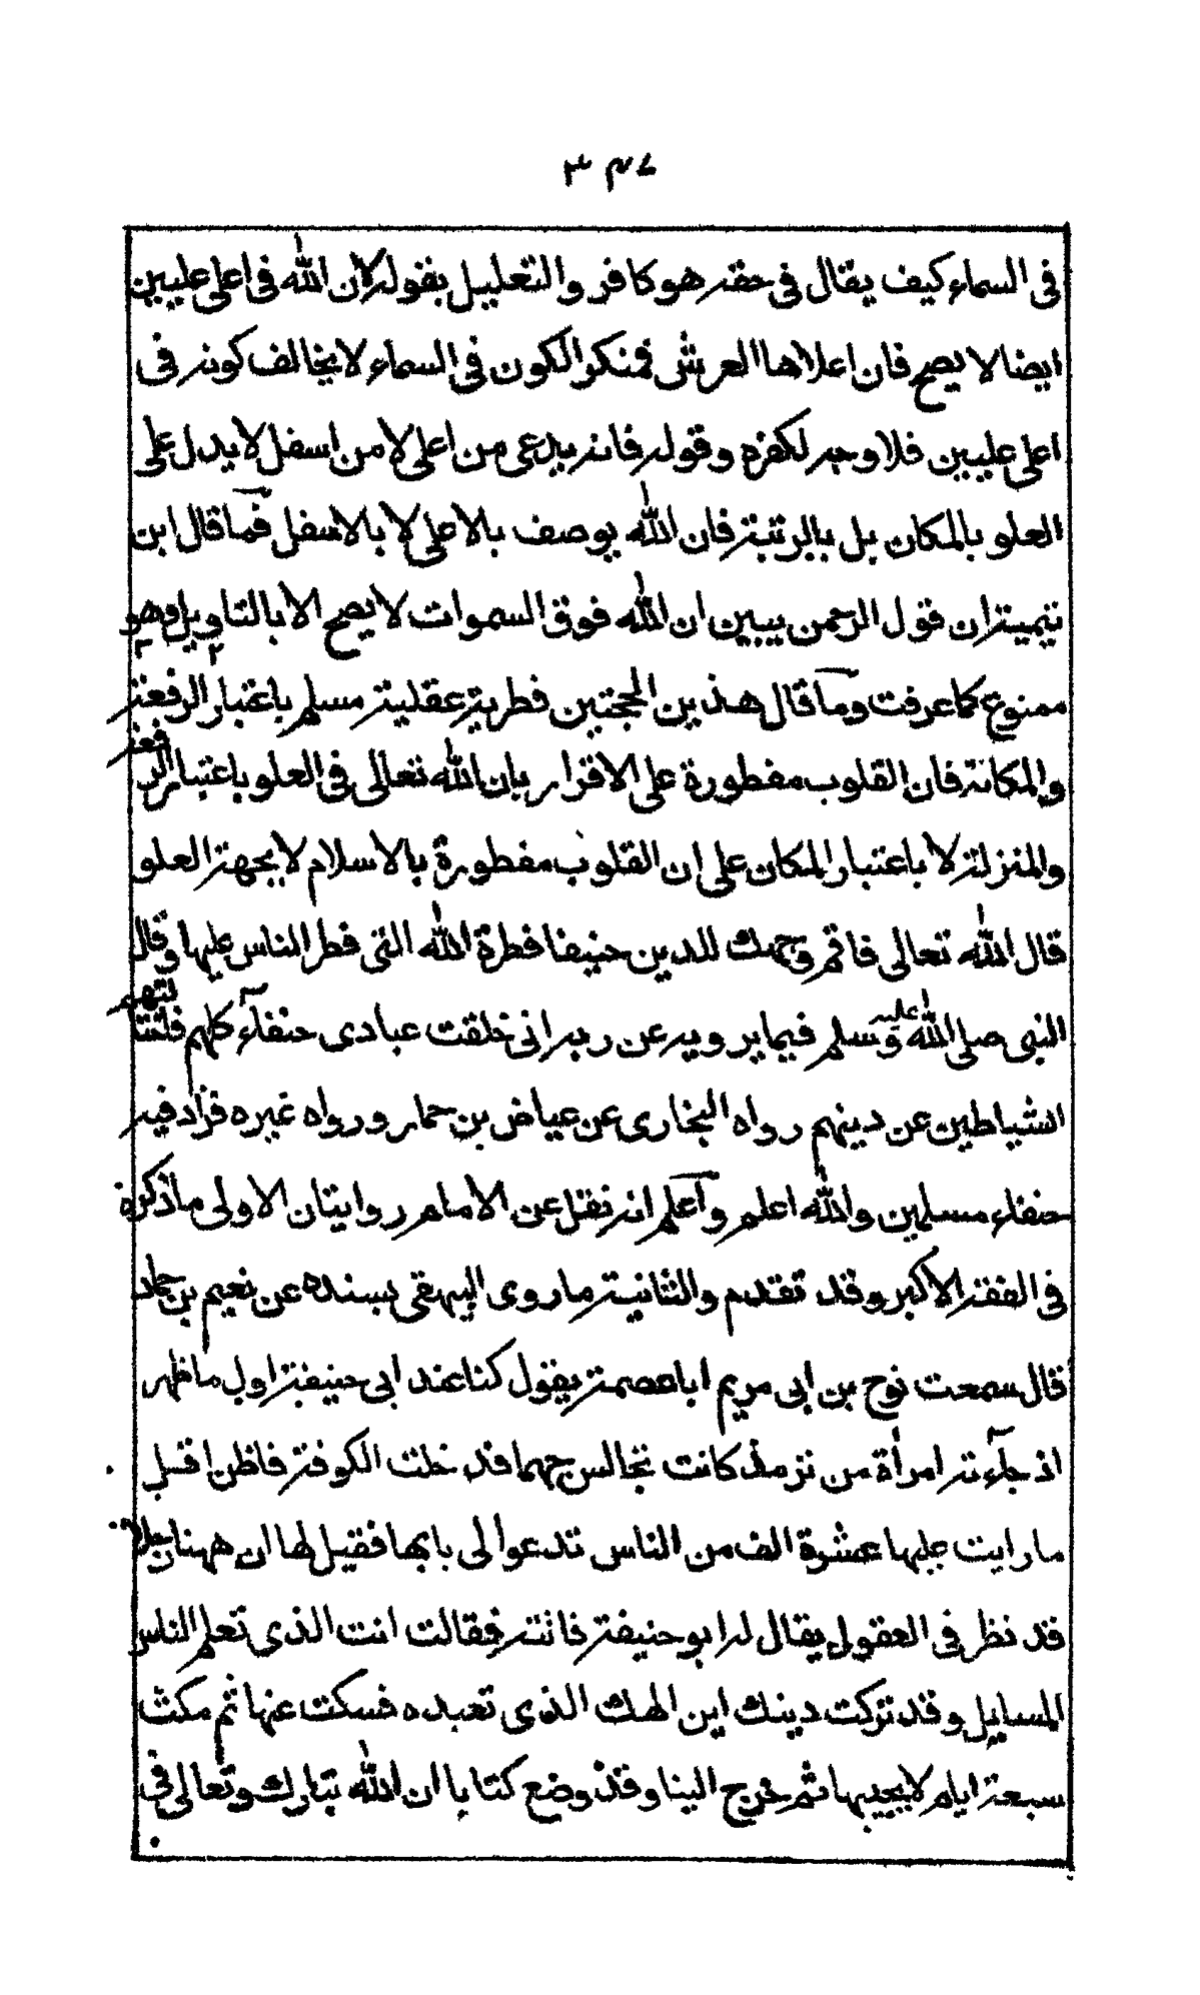 ٣٤٧
في السماء كيف يقال في حقه هو كافر والتعليل بقوله لان الله في اعلى عليين
ايضا لا يصح فان اعلاها العرش فمنكر الكون في السماء لا يخالف كونه في
اعلى عليين فلا وجه لكفره وقوله فانه يدعى من اعلى لا من اسفل لا يدل على
العلو بالمكان بل بالرتبة فان الله يوصف بالاعلى لا بالاسفل فما قال ابن
تيمية ان قول الرحمن يبين ان الله فوق السموات لا يصح الا بالتاويل وهو
ممنوع كما عرفت وما قال هذين الحجتين فطرية عقلية مسلم باعتبار الرفعة
والمكانة فان القلوب مفطورة على الاقرار بان الله تعالى في العلو باعتبار الرفعة
والمنزلة لا باعتبار المكان على ان القلوب مفطورة بالاسلام لا بجهة العلو
قال الله تعالى فاقم وجهك للدين حنيفا فطرة الله التي فطر الناس عليها وقال
النبي صلى الله عليه وسلم فيما يرويه عن ربه اني خلقت عبادي حنفآء كلهم
الشياطين عن دينهم رواه البخاري عن عياض بن حمار ورواه غيره فزاد فيه
حنفاء مسلمين والله اعلم واعلم انه نقل عن الامام روايتان الاولى ما ذكره
في الفقه الاكبر وقد تقدم والثانية ما روى البيهقي بسنده عن نعيم بن حماد
قال سمعت نوح بن ابي مريم ابا عصمة يقول كنا عند ابي حنيفة اول ما ظهر
اذ جآءته امرأة من ترمذ كانت تجالس جهما قد خلت الكوفة فاظن اقبل
ما رايت عليها عشرة الف من الناس تدعوا لى بابها فقيل لها ان ههنا رجلا
قد نظر في العقول يقال له ابو حنيفة فاتته فقالت انت الذي تعلم الناس
المسايل وقد تركت دينك اين الهك الذي تعبده فسكت عنها ثم مكث
سبعة ايام لا يجيبها ثم خرج الينا وقد وضع كتابا ان الله تبارك وتعالى في